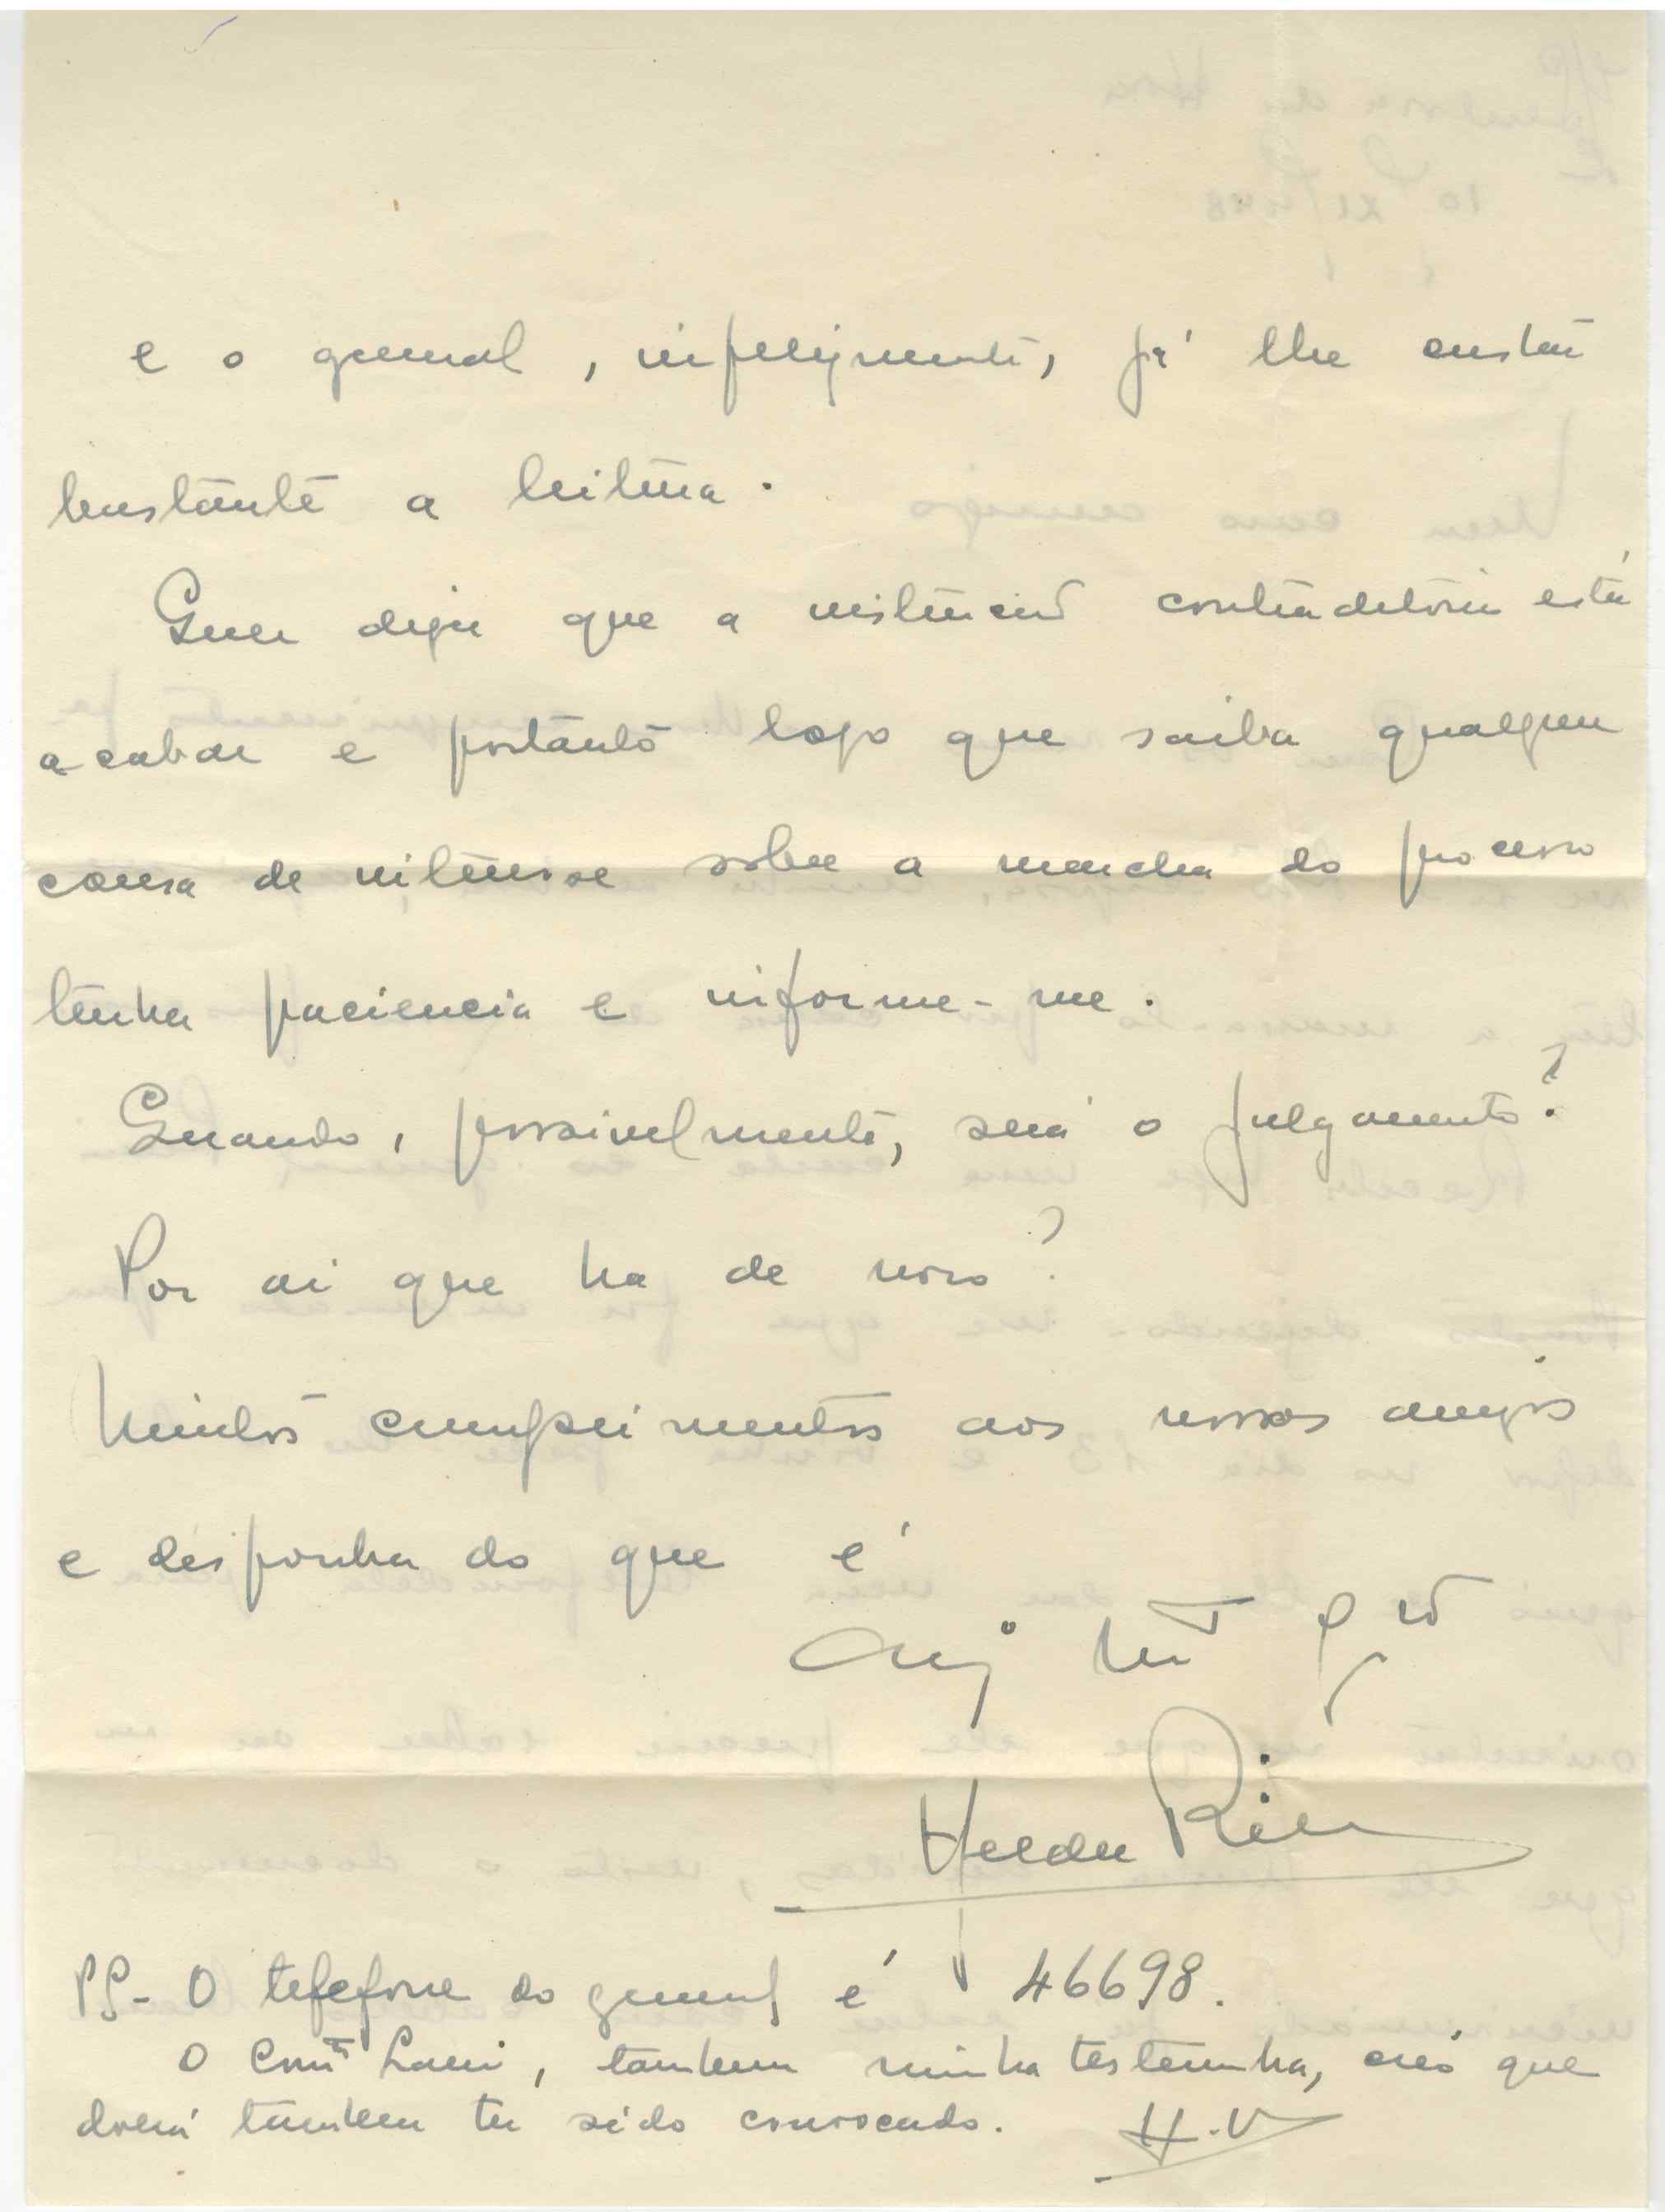 e o general, infelizmente, já lhe custa
bastante a leitura.
Quer dizer que a instrução contraditória está
a acabar e portanto logo que saiba qualquer
cousa de interesse sobre a marcha do processo
tenha paciencia e informe-me.
Quando, possivelmente, será o julgamento?
Por ai que ha de novo?
Muitos cumprimentos aos nossos amigos
e disponha do que é
Amº Mtº
Helder
PS - O telefone do general é 46698.
O Comte, tambem minha testemunha, creio que
deverá tambem ter sido convocado. H.